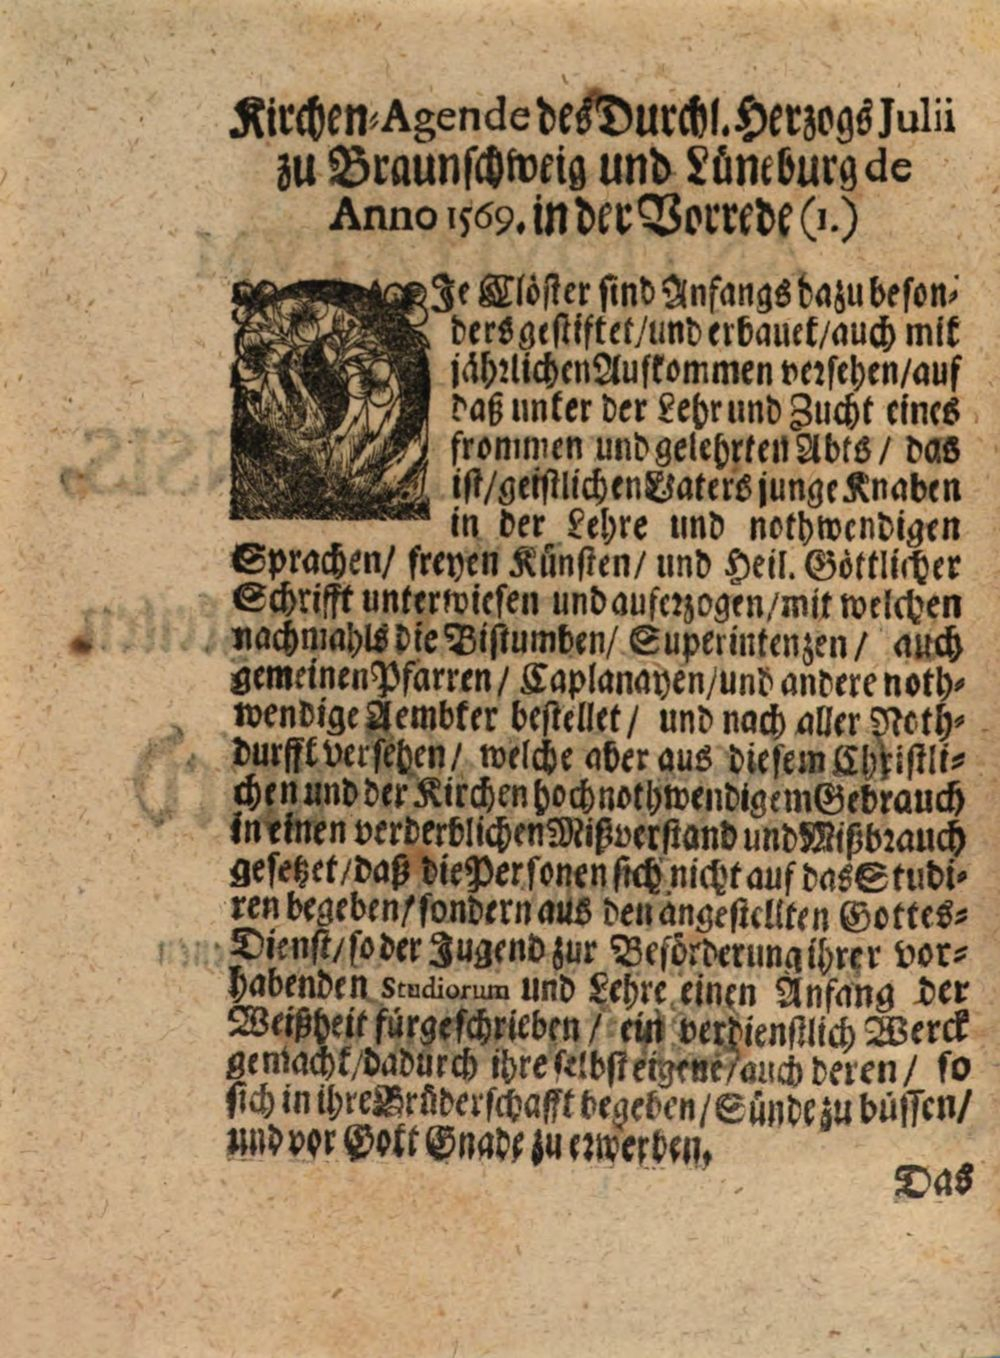 Kirchen-Agende des Durchl. Herzogs Julii
zu Braunschweig und Lüneburg de
Anno 1569. in der Vorrede (1.)
DIe Clöster sind Anfangs dazu beson-
ders gestiftet/und erbauet/auch mit
jährlichen Aufkommen versehen/auf
daß unter der Lehr und Zucht eines
frommen und gelehrten Abts / das
ist/geistlichen Vaters junge Knaben
in der Lehre und nothwendigen
Sprachen/ freyen Künsten/ und Heil. Göttlicher
Schrifft unterwiesen und auferzogen/mit welchen
nachmahls die Bistumben/ Superintenzen / auch
gemeinen Pfarren / Caplanayen/und andere noth-
wendige Aembter bestellet / und nach aller Noth-
durfft versehen / welche aber aus diesem Christli-
chen und der Kirchen hochnothwendigem Gebrauch
in einen verderblichen Mißverstand und Mißbrauch
gesetzet/daß die Personen sich nicht auf das Studi-
ren begeben/sondern aus den angestellten Gottes-
Dienst/so der Jugend zur Beförderung ihrer vor-
habenden Studiorum und Lehre einen Anfang der
Weißheit fürgeschrieben / ein verdienstlich Werck
gemacht/dadurch ihre selbst eigene/auch deren / so
sich in ihre Brüderschafft begeben/Sünde zu büssen/
und vor Gott Gnade zu erwerben.
Das